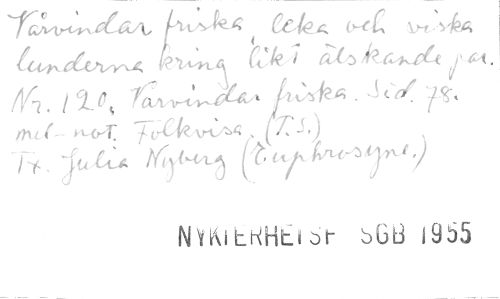 Vårvindar friska, leka och viska
lunderna kring likt älskande par.
Nr. 120, Vårvindar friska. Sid. 78.
mel-not. Folkvisa. (T.S.)
Tx. Julia Nyberg (Euphrosyne.)
NYKTERHETSF SGB 1955